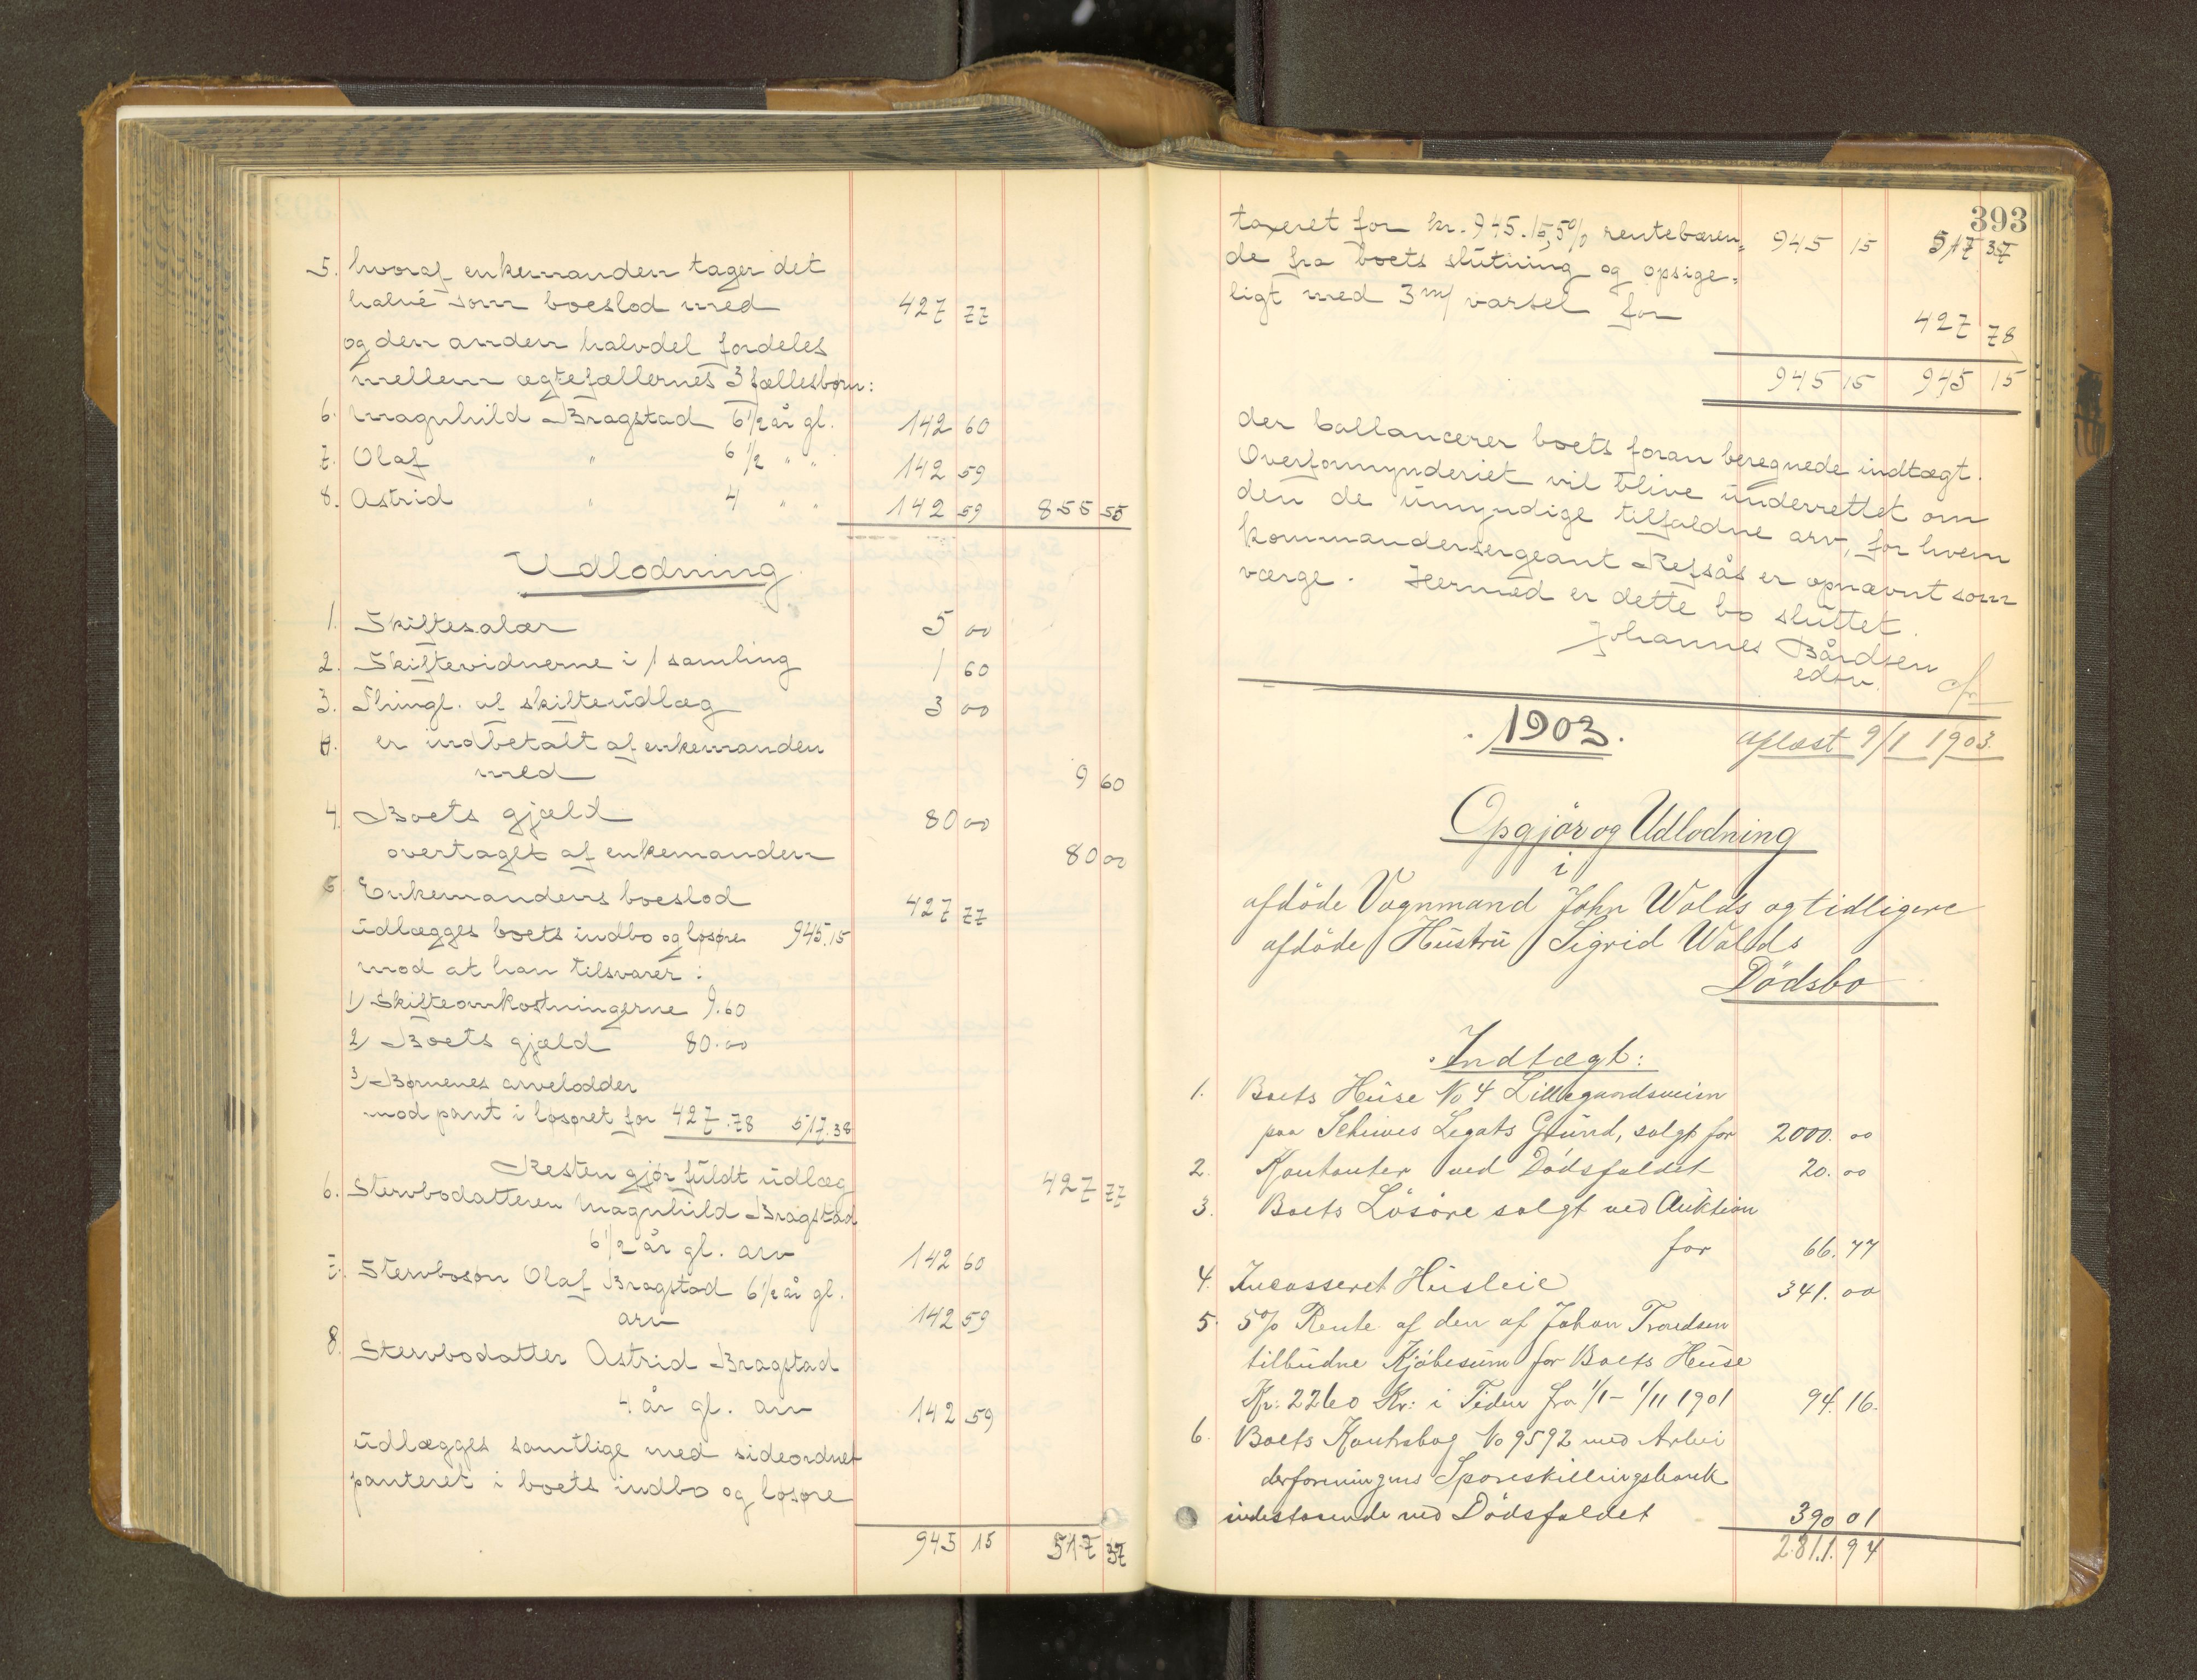 5. hvoraf enkemanden tager det
halve som boeslod med 427 77
og den anden halvdel fordeles
mellem ægtefællernes 3 fællesbørn:
6. Magnhild Bragstad 6 1/2 år gl. 142 60
7. Olaf " 6 1/2 " " 142 59
8. Astrid " 4 " " 142 59 855 55
Udlodning
1. Skiftesalær 5 00
2. Skiftevidnerne i 1 samling 1 60
3. Thingl. af skifteudlæg 3 00
er indbetalt af enkemanden
med 9 60
4. Boets gjæld 80 00
overtaget af enkemanden 80 00
5. Enkemandens boeslod 427 77
udlægges boets indbo og løsøre 945.15
mod at han tilsvarer:
1) Skifteomkostningerne 9.60
2) Boets gjæld 80.00
3) Børnenes arvelodder
mod pant i løsøret for 427.78 517.38
Resten gjør fuldt udlæg 427 77
6. Stervbodatteren Magnhild Bragstad
6 1/2 år gl. arv 142 60
7. Stervbosøn Olaf Bragstad 6 1/2 år gl.
arv 142 59
8. Stervbodatter Astrid Bragstad
4 år gl. arv 142 59
udlægges samtlige med sideordnet
panteret i boets indbo og løsøre
945 15 517 37
393
taxeret for kr. 945.15, 5% rentebæren= 945 15 517 37
de fra boets slutning og opsige=
ligt med 3 m/ varsel for 427 78
945 15 945 15
der ballancerer boets foran beregnede indtægt.
Overformynderiet vil blive underrettet om
den de umyndige tilfaldne arv, for hvem
kommandersergeant Refsås er opnævnt som
værge. Hermed er dette bo sluttet.
Johannes Bårdsen
edsv.
1903. aflæst 9/1 1903.
Opgjør og Udlodning
i
afdöde Vognmand John Walds og tidligere
afdöde Hustru Sigrid Walds
Dödsbo
Indtægt:
1. Boets Huse No 4 Lillegaardsveien
paa Schives Legats Grund, solgt for 2000. 00
2. Kontanter ved Dödsfaldet 20. 00
3. Boets Lösöre solgt ved Auktion
for 66. 77
4. Incasseret Husleie 341. 00
5. 5% Rente af den af Johan Trondsen
tilbudne Kjöbesum for Boets Huse
Kr: 2260 Kr: i Tiden fra 1/1 - 1/11 1901 94. 16.
6. Boets Kontrabog No 9592 med Arbei
derforeningens Spareskillingsbank
indestaaende ved Dödsfaldet 390 01
2811. 94